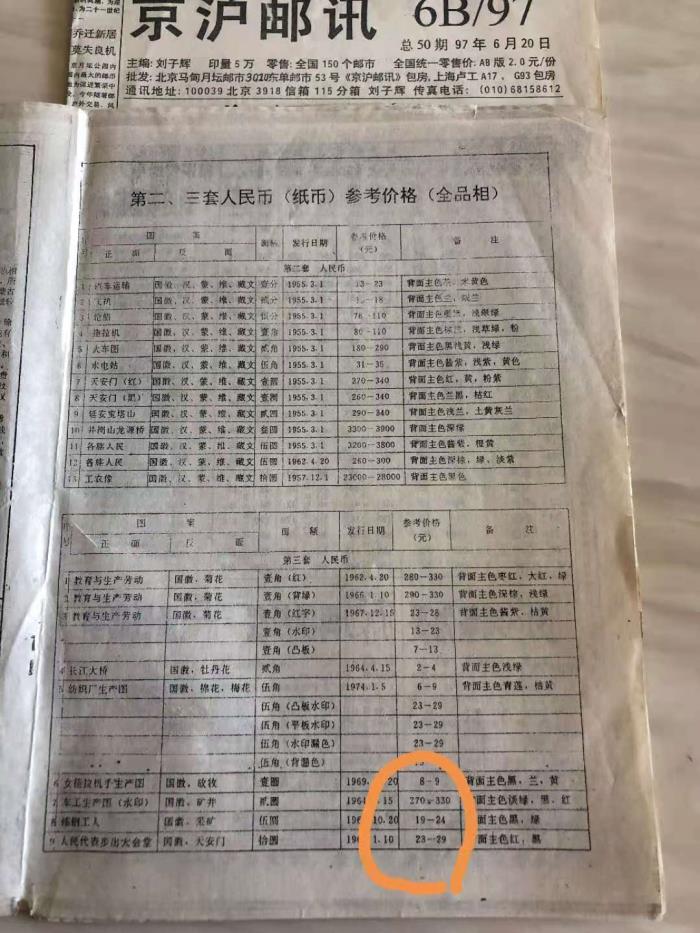 乔迁新居
莫失良机
京沪邮讯
6B/97
总50期 97年6月20日
主编: 刘子辉 印量5万 零售: 全国150个邮市 全国统一零售价: AB版2.0元/份
批发: 北京马甸月坛邮市3020东单邮市53号《京沪邮讯》包房, 上海卢工A17, G93包房
通讯地址: 100039北京3918信箱115分箱 刘子辉 传真电话: (010)68158612
第二、三套人民币（纸币）参考价格（全品相）
图 案 面额 发行日期 参考价格（元） 备 注
正面 反面
第二套 人民币
1 汽车运输 国徽、汉、蒙、维、藏文 壹分 1955.3.1 13-23 背面主色茶、米黄色
2 飞机 国徽、汉、蒙、维、藏文 贰分 1955.3.1 -18 背面主色兰、
3 轮船 国徽、汉、蒙、维、藏文 伍分 1955.3.1 76-110 背面主色 浅翠绿
4 拖拉机 国徽、汉、蒙、维、藏文 壹角 1955.3.1 80-110 背面主色棕 浅草绿，粉
5 火车图 国徽，汉、蒙、维、藏文 贰角 1955.3.1 180-290 背面主色黑浅黄，浅绿
6 水电站 国徽、汉、蒙、维、藏文 伍角 1955.3.1 31-35 背面主色酱紫，浅紫，黄色
7 天安门（红） 国徽、汉、蒙、维、藏文 壹圆 1955.3.1 270-340 背面主色红，黄，粉紫
8 天安门（黑） 国徽、汉、蒙、维、藏文 壹圆 1955.3.1 260-340 背面主色兰黑，桔红
9 延安宝塔山 国徽、汉、蒙、维、藏文 贰圆 1955.3.1 290-340 背面主色浅兰，土黄灰兰
10 井岗山龙源桥 国徽、汉、蒙、维、藏文 叁圆 1955.3.1 3300-3900 背面主色深绿
11 各族人民 国徽、汉、蒙、维、藏文 伍圆 1955.3.1 3200-3800 背面主色酱紫，橙黄
12 各族人民 国徽、汉、蒙、维、藏文 伍圆 1962.4.20 260-300 背面主色深棕，绿、淡紫
13 工农像 国徽、汉、蒙、维、藏文 拾圆 1957.12.1 23000-28000 背面主色黑色
序号 图 案 面 额 发行日期 参考价格（元） 备 注
正 面 反 面
第三套 人民币
1 教育与生产劳动 国徽，菊花 壹角（红） 1962.4.20 280-330 背面主色枣红，大红，绿
2 教育与生产劳动 国徽、菊花 壹角（背绿） 1966.1.10 290-330 背面主色深棕，浅绿
3 教育与生产劳动 国徽、菊花 壹角（红字） 1967.12.15 23-28 背面主色酱紫，桔黄
壹角（水印） 13-23
壹角（凸板） 7-13
4 长江大桥 国徽，牡丹花 贰角 1964.4.15 2-4 背面主色浅绿
5 纺织厂生产图 国徽，棉花，梅花 伍角 1974.1.5 6-9 背面主色青莲，桔黄
伍角（凸板水印） 23-29
伍角（平板水印） 23-29
伍角（水印漏色） 23-29
伍角（背漏色）
6 女拖拉机手生产图 国徽，放牧 壹圆 1969. 20 8-9 背面主色黑，兰，黄
7 车工生产图（水印） 国徽，矿井 贰圆 1964 .15 270-330 背面主色淡绿，黑，红
8 炼钢工人 国徽，采矿 伍圆 196 .10.20 19-24 面主色黑，绿
9 人民代表步出大会堂 国徽、天安门 拾圆 196 1.10 23-29 面主色红，黑